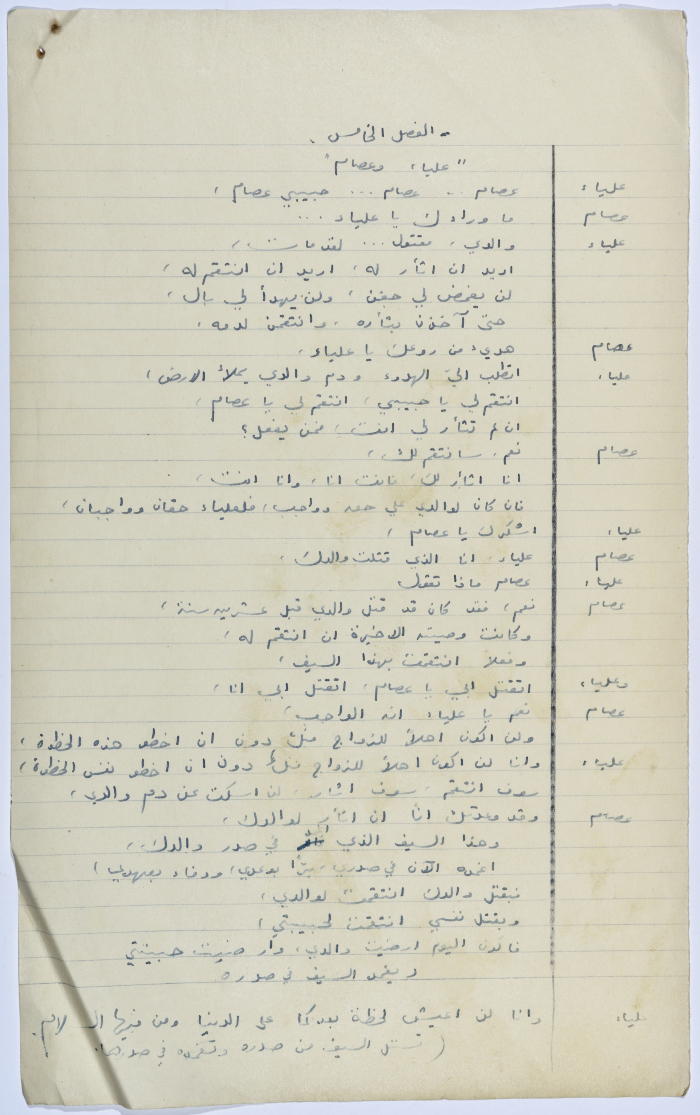 - الفصل الخامس .
"علياء وعصام"
علياء عصام ... عصام ... حبيبي عصام ،
عصام ما وراءك يا علياء ...
علياء والدي ، مقتول ... لقد مات ،
اريد ان اثأر له ، اريد ان انتقم له ،
لن يغمض لي جفن ، ولن يهدأ لي بال ،
حتى آخذن بثأره ، وانتقمن لدمه ،
عصام هديء من روعك يا علياء ،
علياء اتطلب اليّ الهدوء ودم والدي يملأ الارض ،
انتقم لي يا حبيبي ، انتقم لي يا عصام ،
ان لم تثأر لي انت ، فمن يفعل ؟
عصام نعم ، سانتقم لك ،
انا اثأر لك ، فانت انا ، وانا انت ،
فان كان لوالدي علي حق وواجب ، فلعلياء حقان وواجبان ،
علياء اشكرك يا عصام ،
عصام علياء ، انا الذي قتلت والدك ،
علياء عصام ماذا تقول
عصام نعم ، فقد كان قد قتل والدي قبل عشرين سنة ،
وكانت وصيته الاخيرة ان انتقم له ،
وفعلا انتقمت بهذا السيف ،
وعلياء اتقتل ابي يا عصام ، اتقتل ابي انا ،
عصام نعم يا علياء انه الواجب ،
ولن اكون اهلاً للزواج منك دون ان اخطو هذه الخطوة ،
علياء وانا لن اكون اهلاً للزواج منك دون ان اخطو نفس الخطوة ،
سوف انتقم ، سوف اثأر ، لن اسكت عن دم والدي ،
عصام وقد وعدتك انا ان اثأر لوالدك ،
وهذا السيف الذي في صدر والدك ،
اغمده الآن في صدري ، برّاً بوعدي ، ووفاء بعهدي ،
فبقتل والدك انتقمت لوالدي ،
وبقتل نفسي انتقمت لحبيبتي ،
فاكون اليوم ارضيت والدي ، وارضيت حبيبتي
ويغمد السيف في صدره
علياء وانا لن اعيش لحظة بعدكما على الدنيا ومن فيها السلام .
( تستل السيف من صدره وتغمده في صدرها .